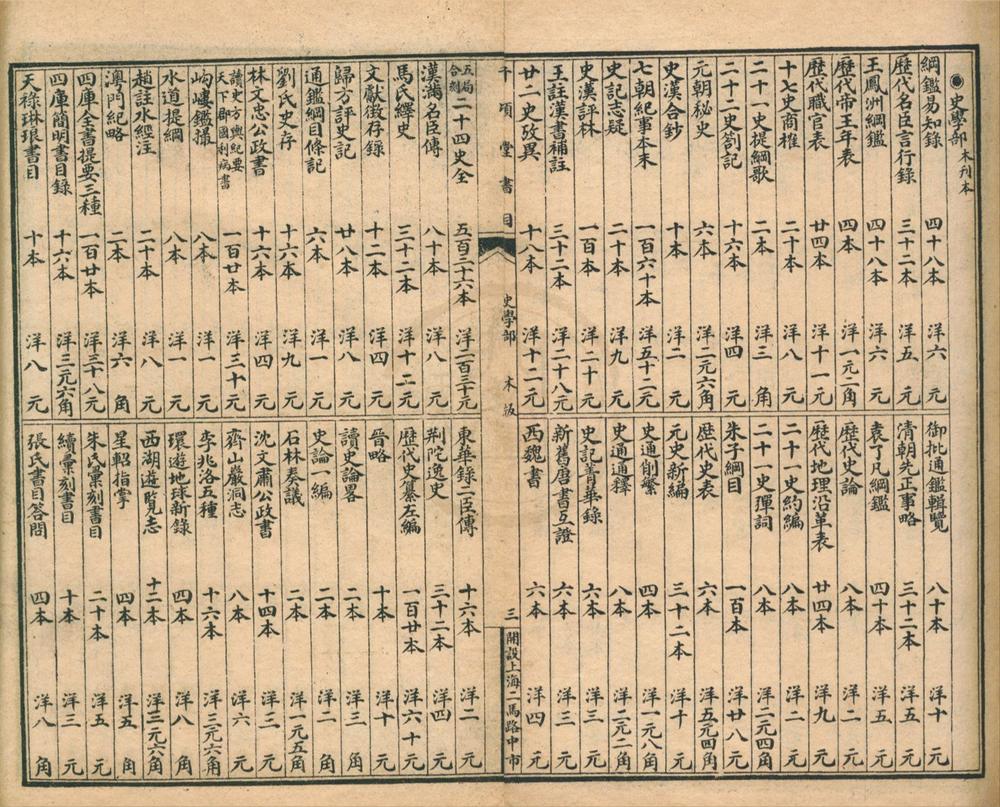 史學部 木刊本
綱鑑易知錄 四十八本 洋六元
歷代名臣言行錄 三十二本 洋五元
王鳳洲綱鑑 四十八本 洋六元
歷代帝王年表 四本 洋一元二角
歷代職官表 廿四本 洋十一元
十七史商榷 二十本 洋八元
二十一史提綱歌 二本 洋三角
二十二史劄記 十六本 洋四元
元朝秘史 六本 洋二元六角
史漢合鈔 十本 洋二元
七朝紀事本末 一百六十本 洋五十二元
史記志疑 二十本 洋九元
史漢評林 一百本 洋二十元
王註漢書補註 三十二本 洋二十八元
廿二史攷異 十八本 洋十二元
御批通鑑輯覽 八十本 洋十元
清朝先正事略 三十二本 洋五元
袁了凡綱鑑 四十本 洋五元
歷代史論 八本 洋二元
歷代地理沿革表 廿四本 洋九元
二十一史約編 八本 洋二元
二十一史彈詞 八本 洋二元四角
朱子綱目 一百本 洋廿八元
歷代史表 六本 洋五元四角
元史新編 三十二本 洋十元
史通削繁 四本 洋一元八角
史通通釋 八本 洋二元二角
史記菁華錄 六本 洋三元
新舊唐書互證 六本 洋三元
西魏書 六本 洋四元
千頃堂書目 史學部 木板 三 開設上海二馬路中市
五局合刻二十四史全 五百二十六本 洋二百三十元
漢滿名臣傳 八十本 洋八元
馬氏繹史 三十二本 洋十二元
文獻徵存錄 十二本 洋四元
歸方評史記 廿八本 洋八元
通鑑綱目條記 六本 洋一元
劉氏史存 十六本 洋九元
林文忠公政書 十六本 洋四元
讀史方輿紀要 天下郡國利病書 一百廿本 洋三十元
岣嶁鑑撮 八本 洋一元
水道提綱 八本 洋一元
趙註水經注 二十本 洋八元
澳門紀略 二本 洋六角
四庫全書提要三種 一百廿本 洋三十八元
四庫簡明書目錄 十六本 洋三元六角
天祿琳琅書目 十本 洋八元
東華錄二臣傳 十六本 洋二元
荆陀逸史 三十二本 洋四元
歷代史纂左編 一百廿本 洋六十元
晉略 十本 洋十元
讀史論畧 二本 洋三角
史論一編 二本 洋二角
石林奏議 二本 洋一元五角
沈文肅公政書 十四本 洋三元
齊山巖洞志 八本 洋六元
李兆洛五種 十六本 洋三元六角
環遊地球新錄 四本 洋八角
西湖遊覽志 十二本 洋二元六角
星軺指掌 四本 洋五角
朱氏彙刻書目 二十本 洋五元
續彙刻書目 十本 洋三元
張氏書目答問 四本 洋八角